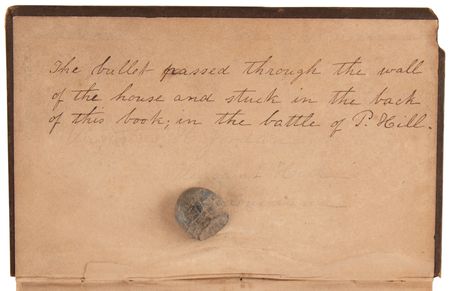 The bullet passed through the wall
of the house and stuck in the back
of this book; in the battle of P. Hill.